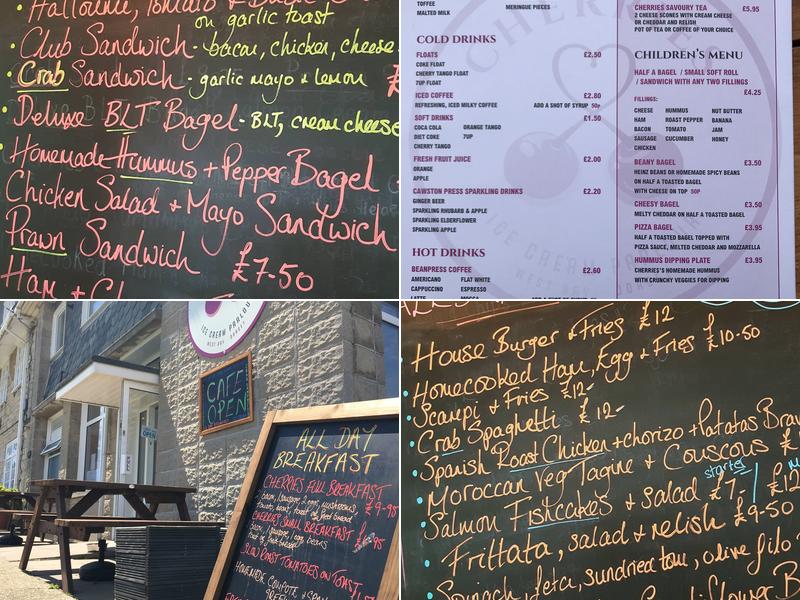 Halloumi, Tomato &
on garlic toast
Club Sandwich - bacon, chicken, cheese
Crab Sandwich - garlic mayo & lemon £
Deluxe BLT Bagel - BLT, cream cheese
Homemade Hummus + Pepper Bagel
Chicken Salad & Mayo Sandwich
Prawn Sandwich £7-50
Ham +
TOFFEE
MALTED MILK
MERINGUE PIECES
COLD DRINKS
FLOATS £2.50
COKE FLOAT
CHERRY TANGO FLOAT
7UP FLOAT
ICED COFFEE £2.80
REFRESHING, ICED MILKY COFFEE ADD A SHOT OF SYRUP 50p
SOFT DRINKS £1.50
COCA COLA ORANGE TANGO
DIET COKE 7UP
CHERRY TANGO
FRESH FRUIT JUICE £2.00
ORANGE
APPLE
CAWSTON PRESS SPARKLING DRINKS £2.20
GINGER BEER
SPARKLING RHUBARB & APPLE
SPARKLING ELDERFLOWER
SPARKLING APPLE
HOT DRINKS
BEANPRESS COFFEE £2.60
AMERICANO FLAT WHITE
CAPPUCCINO ESPRESSO
LATTE MOCCA
CHERRIES SAVOURY TEA £5.95
2 CHEESE SCONES WITH CREAM CHEESE
OR CHEDDAR AND RELISH
POT OF TEA OR COFFEE OF YOUR CHOICE
CHILDREN'S MENU
HALF A BAGEL / SMALL SOFT ROLL
/ SANDWICH WITH ANY TWO FILLINGS
£4.25
FILLINGS:
CHEESE HUMMUS NUT BUTTER
HAM ROAST PEPPER BANANA
BACON TOMATO JAM
SAUSAGE CUCUMBER HONEY
CHICKEN
BEANY BAGEL £3.50
HEINZ BEANS OR HOMEMADE SPICY BEANS
ON HALF A TOASTED BAGEL
WITH CHEESE ON TOP 50P
CHEESY BAGEL £3.50
MELTY CHEDDAR ON HALF A TOASTED BAGEL
PIZZA BAGEL £3.95
HALF A TOASTED BAGEL TOPPED WITH
PIZZA SAUCE, MELTED CHEDDAR AND MOZZARELLA
HUMMUS DIPPING PLATE £3.95
CHERRIES'S HOMEMADE HUMMUS
WITH CRUNCHY VEGGIES FOR DIPPING
ICE CREAM PARLOUR
WEST BAY DORSET
CAFE
OPEN
ALL DAY
BREAKFAST
CHERRIES FULL BREAKFAST
£9-95
CHERRIES SMALL BREAKFAST
SLOW ROAST TOMATOES ON TOAST
HOMEMADE COMPOTE
House Burger & Fries £12
Homecooked Ham, Egg & Fries £10-50
Scampi & Fries £12-
Crab Spaghetti £12-
Spanish Roast Chicken + chorizo + Patatas Brav
Moroccan Veg Tagine & Couscous £
starter
Salmon Fishcakes & salad £7 / £12
Frittata, salad & relish £9-50
Spinach, feta, sundried tom, olive filo